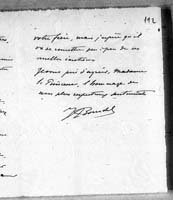 192
votre frère, mais j'espère qu'il
va se remettre peu à peu de ses
Je vous prie d'agréer, Madame
la Princesse, l'hommage de
mes plus respectueux sentiments